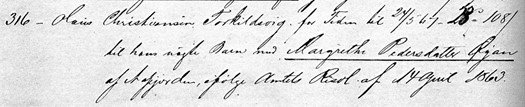 316 – Hans Christiansen Torkildsvig for Tiden til 24/5 67 – 28 – 108/
til hans uægte Barn med Margrethe Pedersdatter Øyan
af Aafjorden, ifølge Amtets Resol. af 14 April 1860.